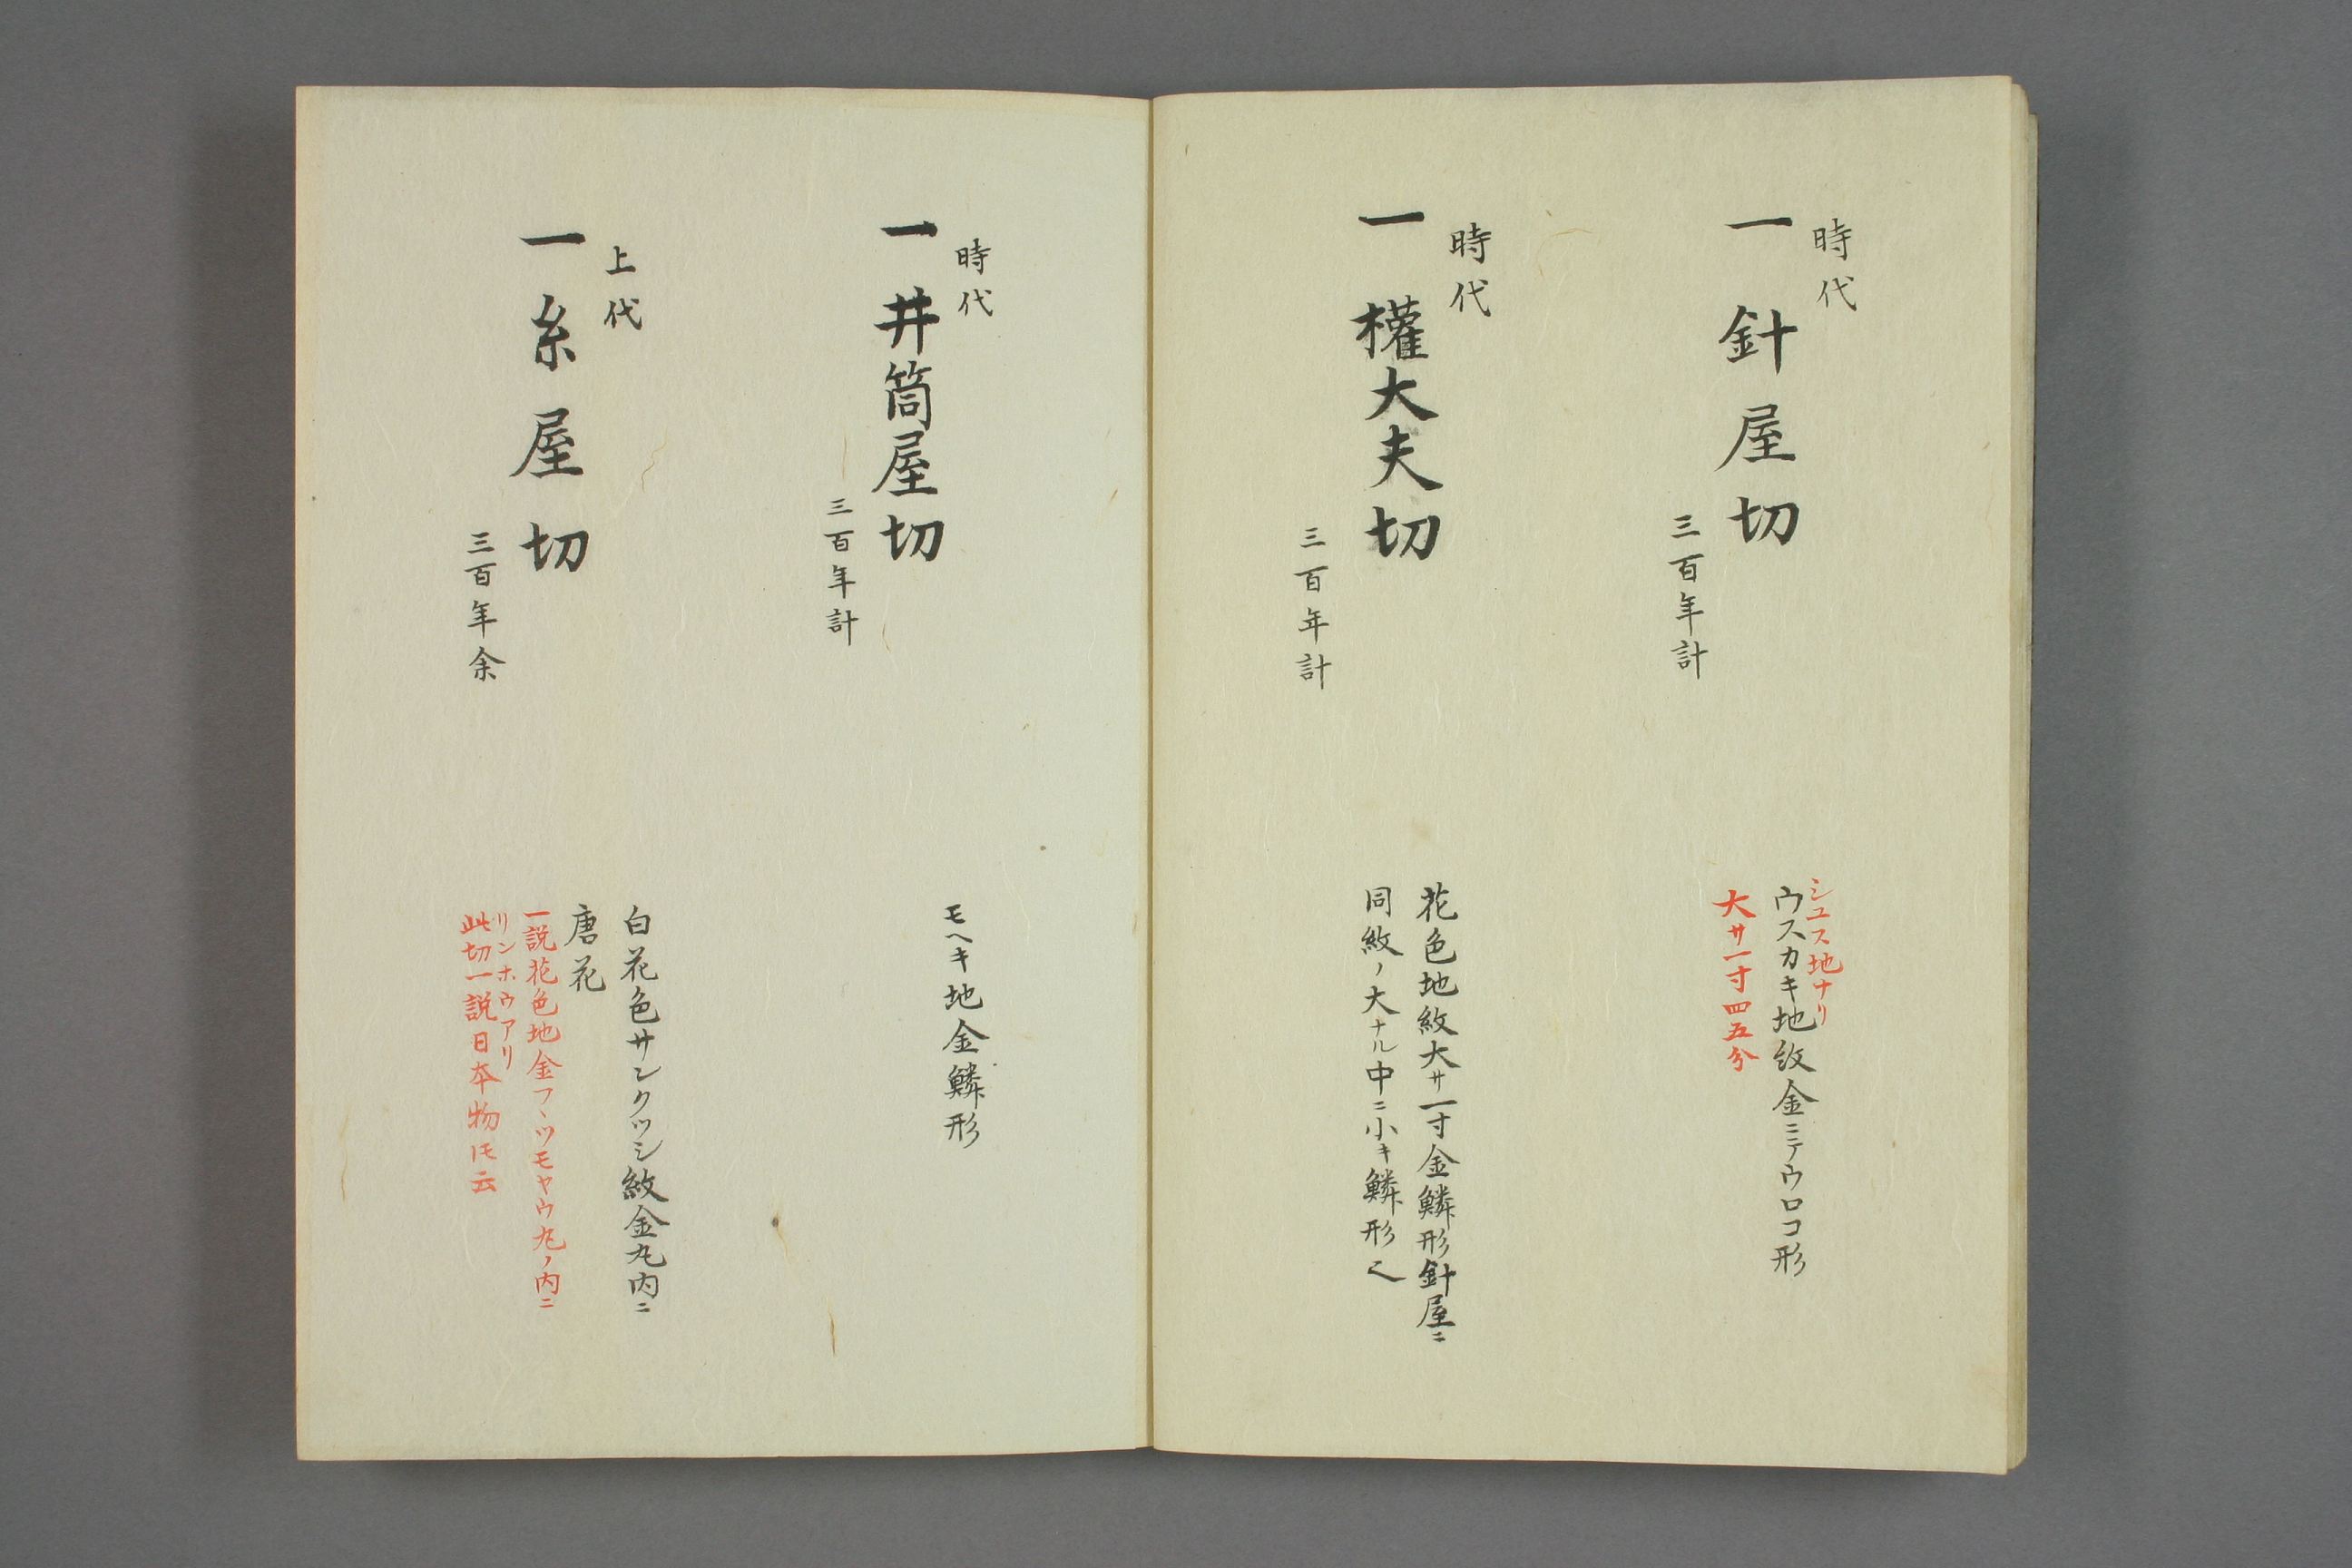 時代
一 針屋切
三百年計
シユス地ナリ
ウスカキ地紋金ニテウロコ形
大サ一寸四五分
時代
一 權大夫切
三百年計
花色地紋大サ一寸金鱗形針屋ニ
同紋ノ大ナル中ニ小キ鱗形也
時代
一 井筒屋切
三百年計
モヘキ地金鱗形
上代
一 糸屋切
三百年余
白花色サンクツシ紋金丸内ニ
唐花
一説花色地金フヽツモヤウ丸ノ内ニ
リンホウアリ
此切一説日本物トモ云